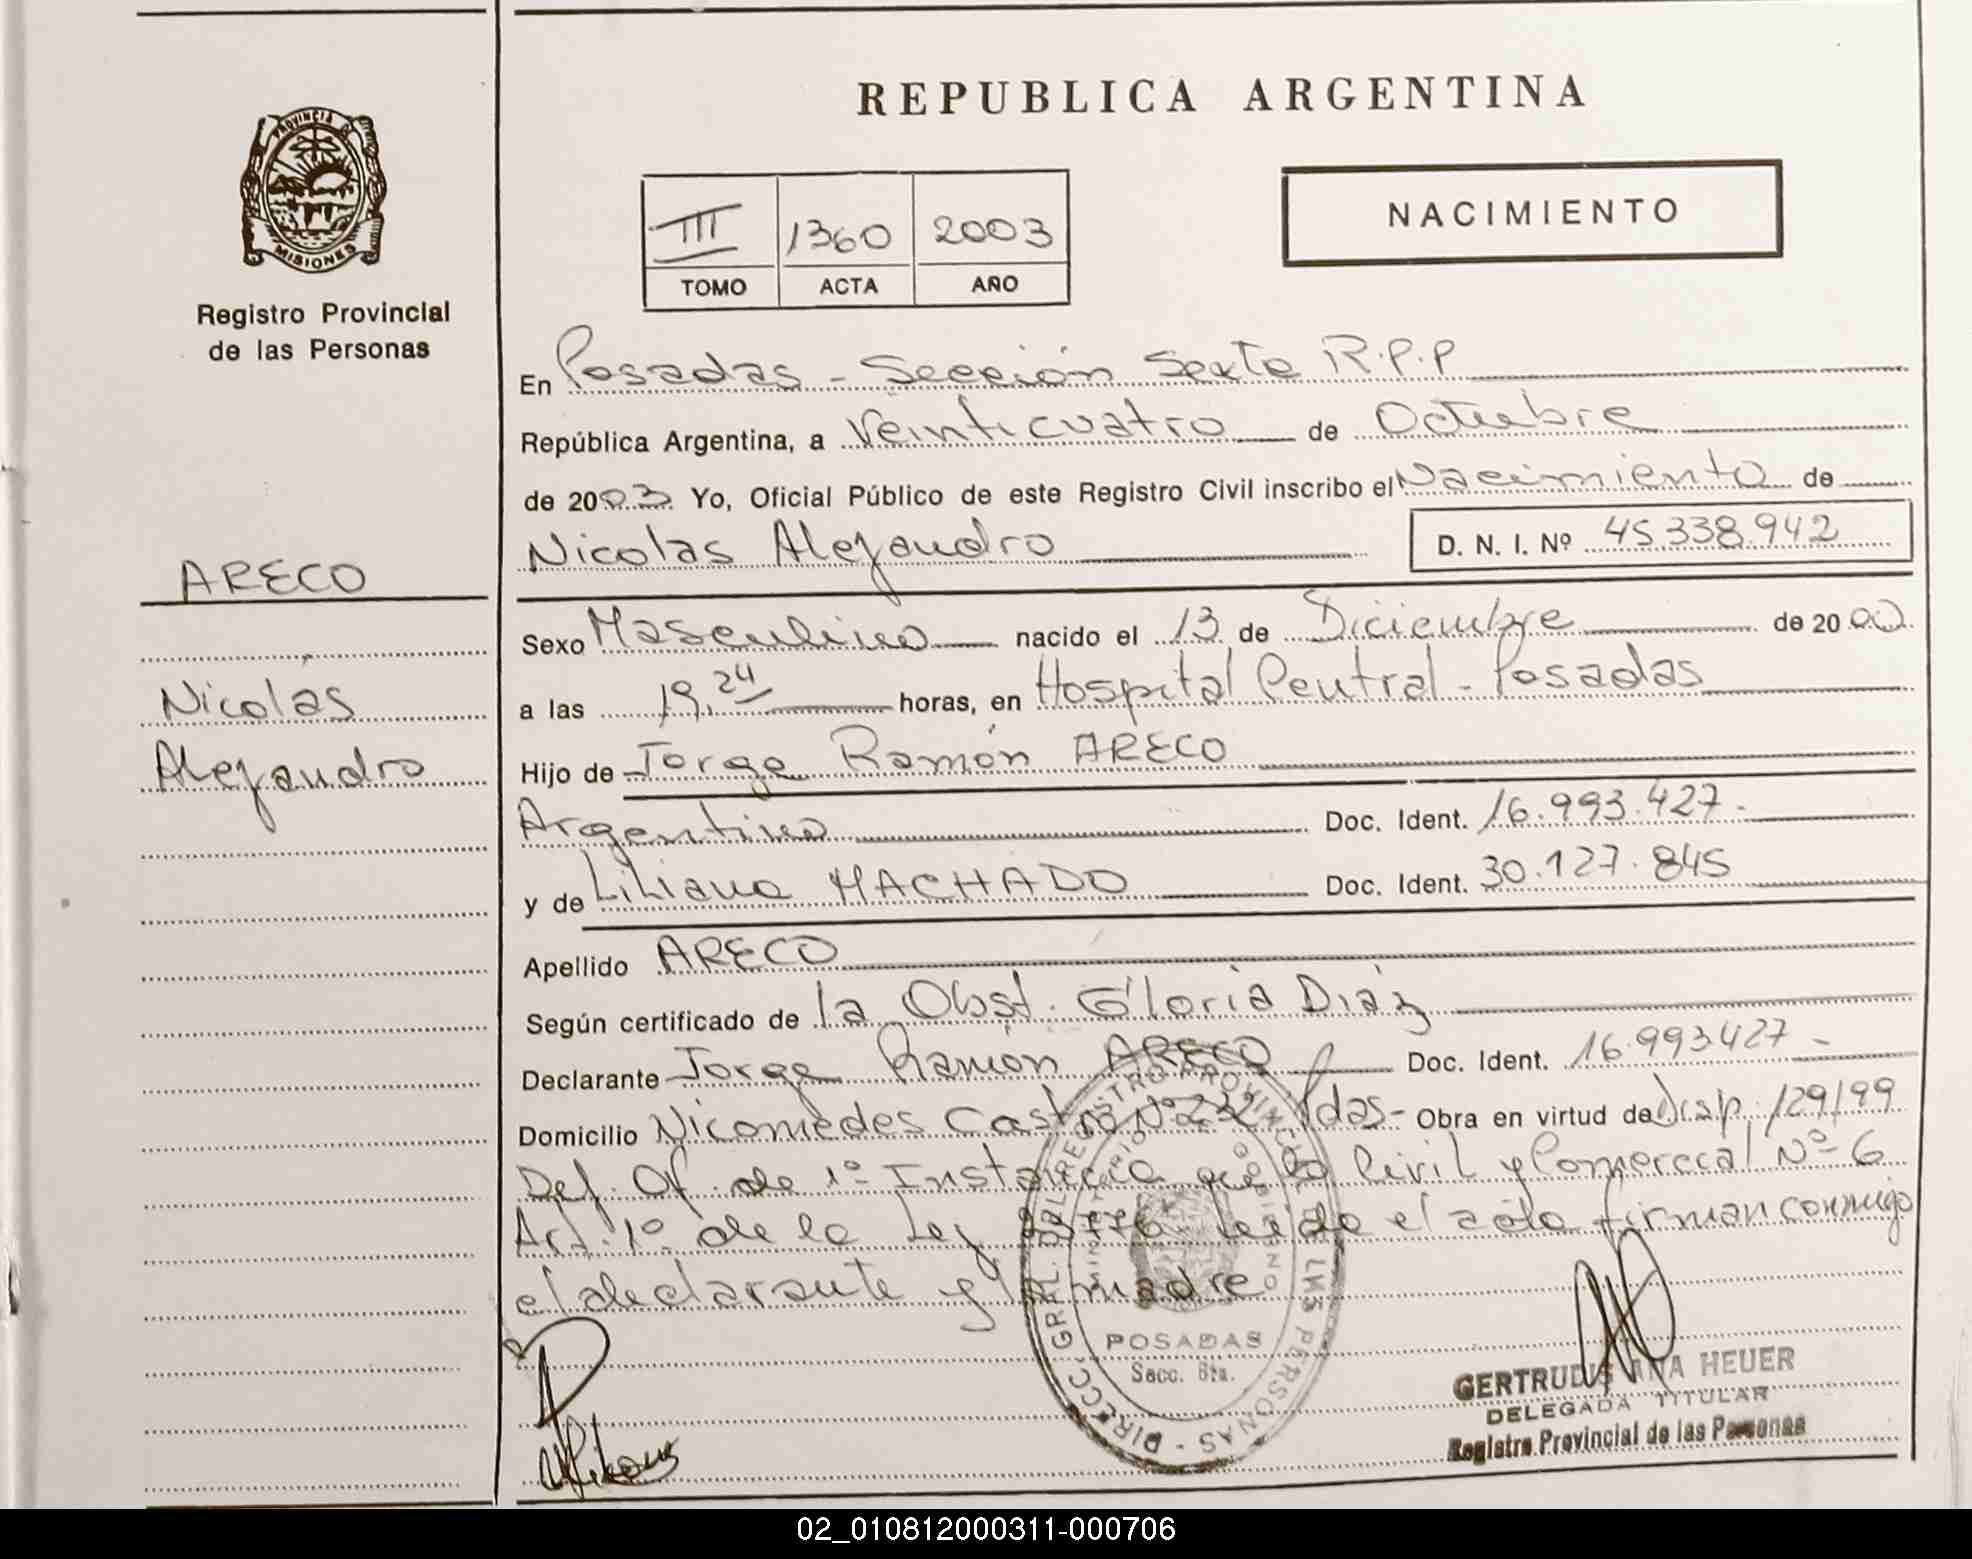 PROVINCIA DE
MISIONES
Registro Provincial
de las Personas
ARECO
Nicolás
Alejandro
REPUBLICA ARGENTINA
III 1360 2003
TOMO ACTA AÑO
NACIMIENTO
En Posadas - Sección Sexta R.P.P
República Argentina, a Veinticuatro de Octubre
de 2003 Yo, Oficial Público de este Registro Civil inscribo el Nacimiento de
Nicolás Alejandro D. N. I. Nº 45.338.942
Sexo Masculino nacido el 13 de Diciembre de 2000
a las 19,24 horas, en Hospital Central - Posadas
Hijo de Jorge Ramón ARECO
Argentino Doc. Ident. 16.993.427.
y de Liliana MACHADO Doc. Ident. 30.127.845
Apellido ARECO
Según certificado de la Obst. Gloria Diáz
Declarante Jorge Ramón ARECO Doc. Ident. 16.993427 -
Domicilio Nicomedes Castro Nº 232 Pdas - Obra en virtud de disp. 129/99
Def. Of. de 1º Instancia que lo Civil y Comercial Nº 6
Art. 1º de la Ley leído el acta firman conmigo
el declarante y la madre
DIRECC. GRAL. DEL REGISTRO PROVINCIAL DE LAS PERSONAS
MINISTERIO DE GOBIERNO
POSADAS
Secc. 6ta.
GERTRUDIS ANA HEUER
DELEGADA TITULAR
Registro Provincial de las Personas
02_010812000311-000706